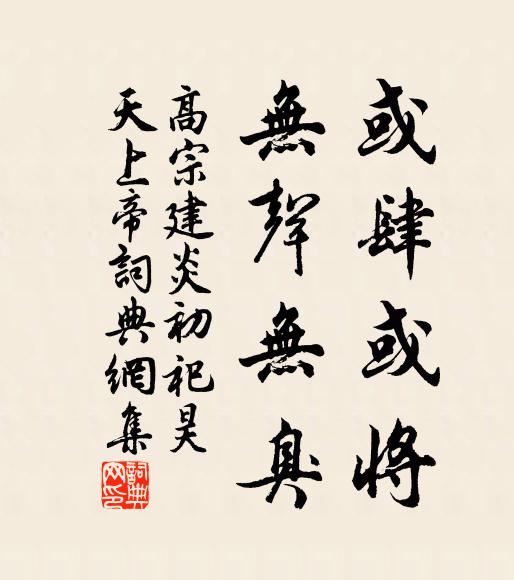 或肆或將
無聲無臭
高宗建炎初祀昊
天上帝詞典網集
詞典
网印